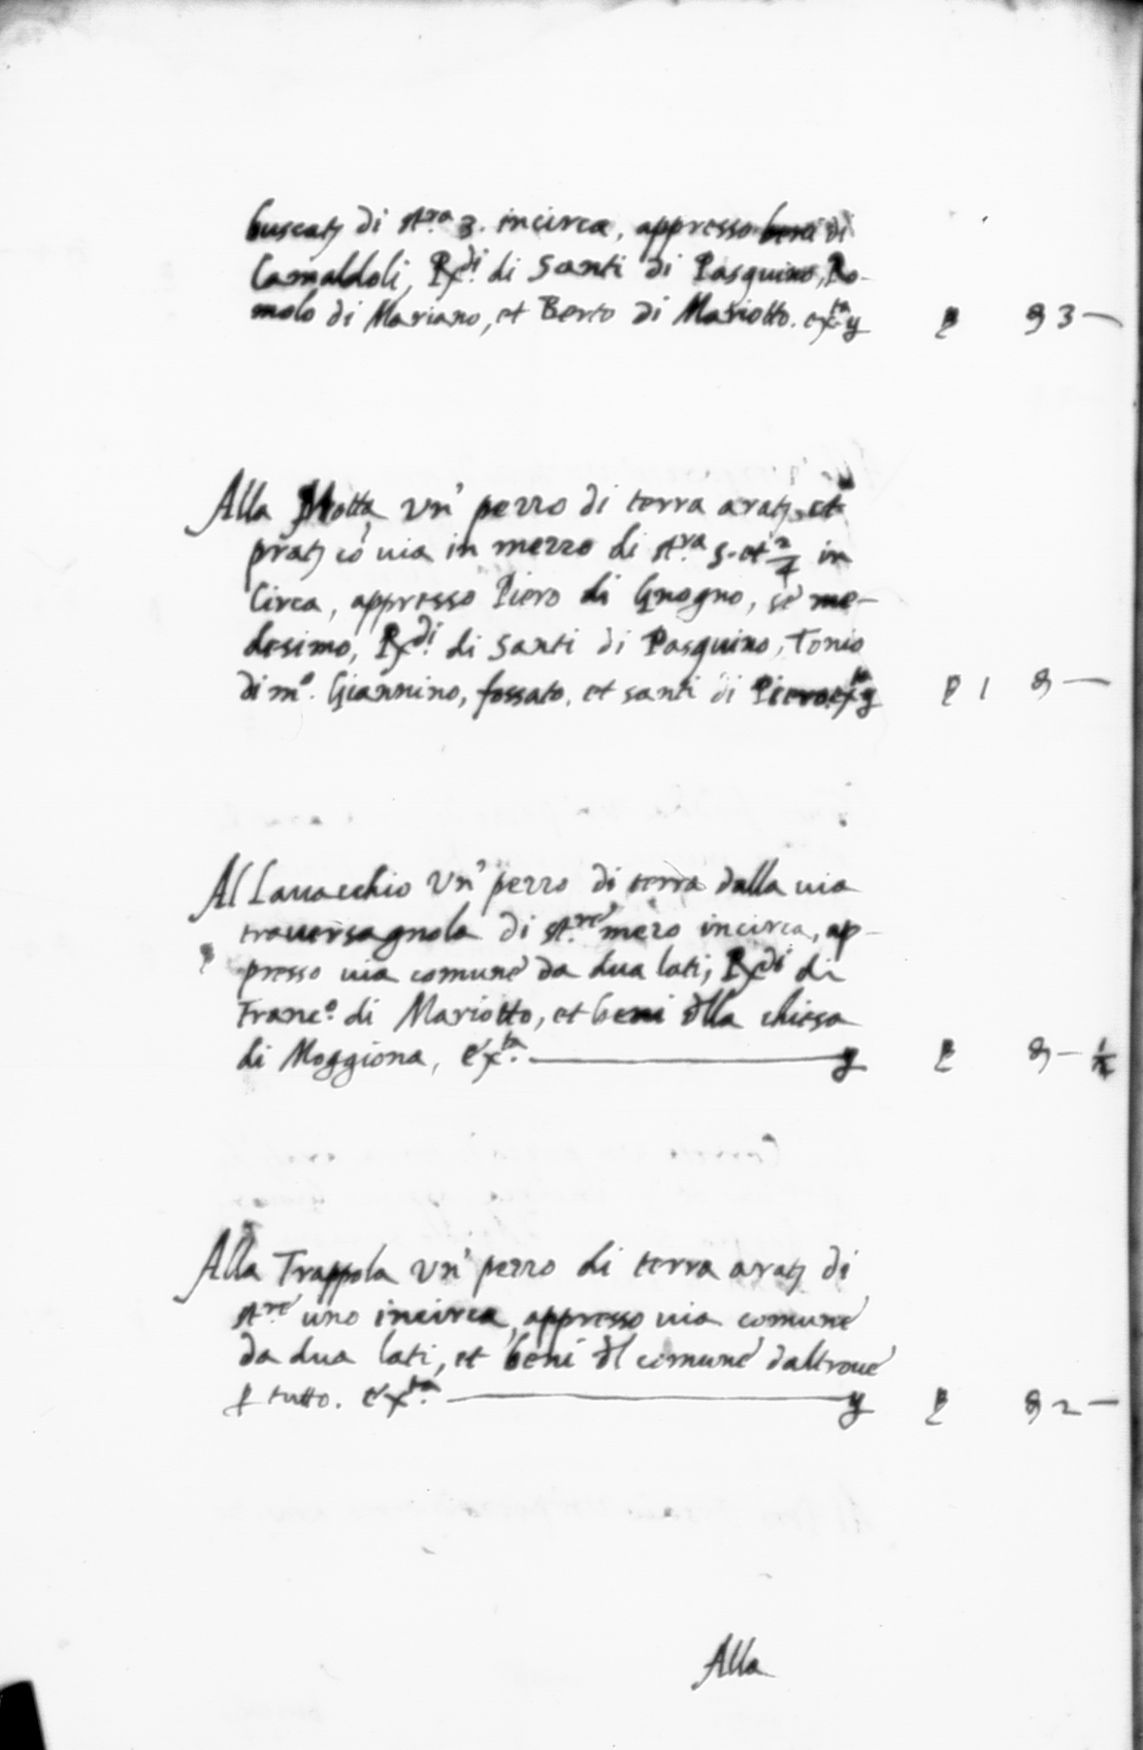 buscatȝ di stra 3. incirca, appresso beni di
Camaldoli, Rxdi di Santi di Pasquino, Ro-
molo di Mariano, et Berto di Mariotto. exta y £ 93—
Alla Motta, vn' pezzo di terra aratȝ et
pratȝ cō uia in mezzo di stra 5. et 2/4 in
Circa, appresso Piero di Gnogno, se me-
desimo, Rxdi di Santi di Pasquino, Tonio
di mo. Giannino, fossato, et santi di Piero. exta y £ 1 9—
Al Lauacchio Vn' pezzo di terra dalla uia
trauersagnola di stre mezo incirca, ap-
presso uia comune da dua lati, Rxdi di
Franco. di Mariotto, et beni dlla chiesa
di Moggiona, exta. y £ 9—
Alla Trappola vn' pezzo di terra aratȝ di
stre uno incirca, appresso uia comune
da dua lati, et beni dl comune daltroue
ꝑ tutto. exta. y £ 92—
Alla